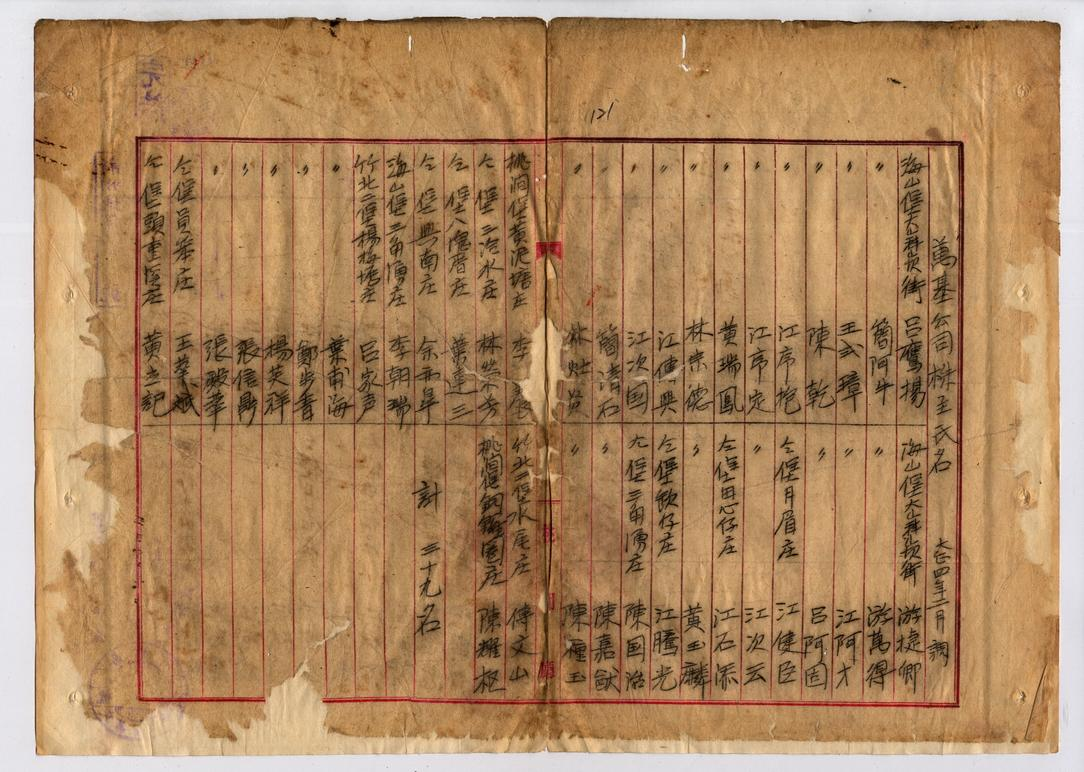 121
萬基公司株主氏名 大正四年二月調
海山堡大嵙崁街 呂鷹揚
〃 簡阿牛
〃 王式璋
〃 陳乾
〃 江序抱
〃 江序定
〃 黃瑞鳳
〃 林宗德
〃 江健興
〃 江次国
〃 簡清石
〃 林
海山堡大嵙崁街 游捷卿
〃 游萬得
〃 江阿才
〃 呂阿固
仝堡月眉庄 江健臣
〃 江次云
仝堡田心仔庄 江石添
〃 黃玉麟
仝堡缺仔庄 江騰光
仝堡三角湧庄 陳国治
〃 陳嘉猷
〃 陳種玉
桃澗堡黃泥塘庄 李
仝堡三洽水庄 林
仝堡八塊厝庄 葉達三
仝堡興南庄 余
海山堡三角湧庄 李朝瑞
竹北二堡楊梅壢庄 呂家声
〃 葉甫海
〃 鄭步香
〃 楊英祥
〃 張信
〃 張駿華
仝堡員笨庄 王
仝堡頭重溪庄 黃立記
竹北二堡水尾庄 傅文山
桃澗堡銅鑼圈庄 陳耀枢
計 三十九名